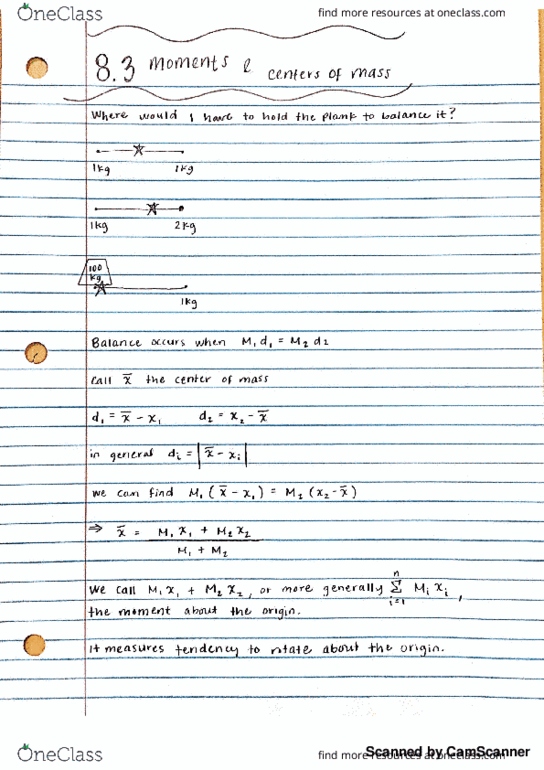 OneClass find more resources at oneclass.com
8.3 moments & centers of mass
Where would I have to hold the plank to balance it?
1kg 1kg
1kg 2kg
100 kg
1kg
Balance occurs when M₁d₁ = M₂d₂
Call x̄ the center of mass
d₁ = x̄ - x₁ d₂ = x₂ - x̄
in general dᵢ = |x̄ - xᵢ|
we can find M₁(x̄ - x₁) = M₂(x₂ - x̄)
⇒ x̄ = M₁x₁ + M₂x₂
M₁ + M₂
We call M₁x₁ + M₂x₂, or more generally n Σ i=1 Mᵢxᵢ,
the moment about the origin.
It measures tendency to rotate about the origin.
OneClass find more resources at oneclass.com
Scanned by CamScanner